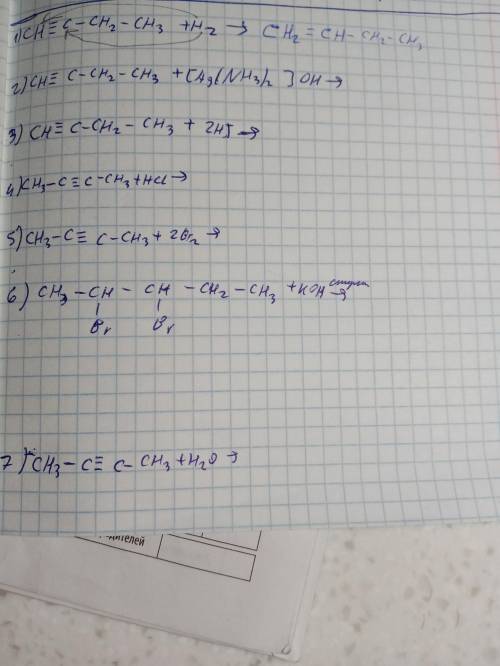 1) CH≡C-CH₂-CH₃ + H₂ → CH₂=CH-CH₂-CH₃
2) CH≡C-CH₂-CH₃ + [Ag(NH₃)₂]OH →
3) CH≡C-CH₂-CH₃ + 2HJ →
4) CH₃-C≡C-CH₃ + HCl →
5) CH₃-C≡C-CH₃ + 2Br₂ →
6) CH₃-CH-CH-CH₂-CH₃ + KOH →
Br Br
7) CH₃-C≡C-CH₃ + H₂O →
дителей